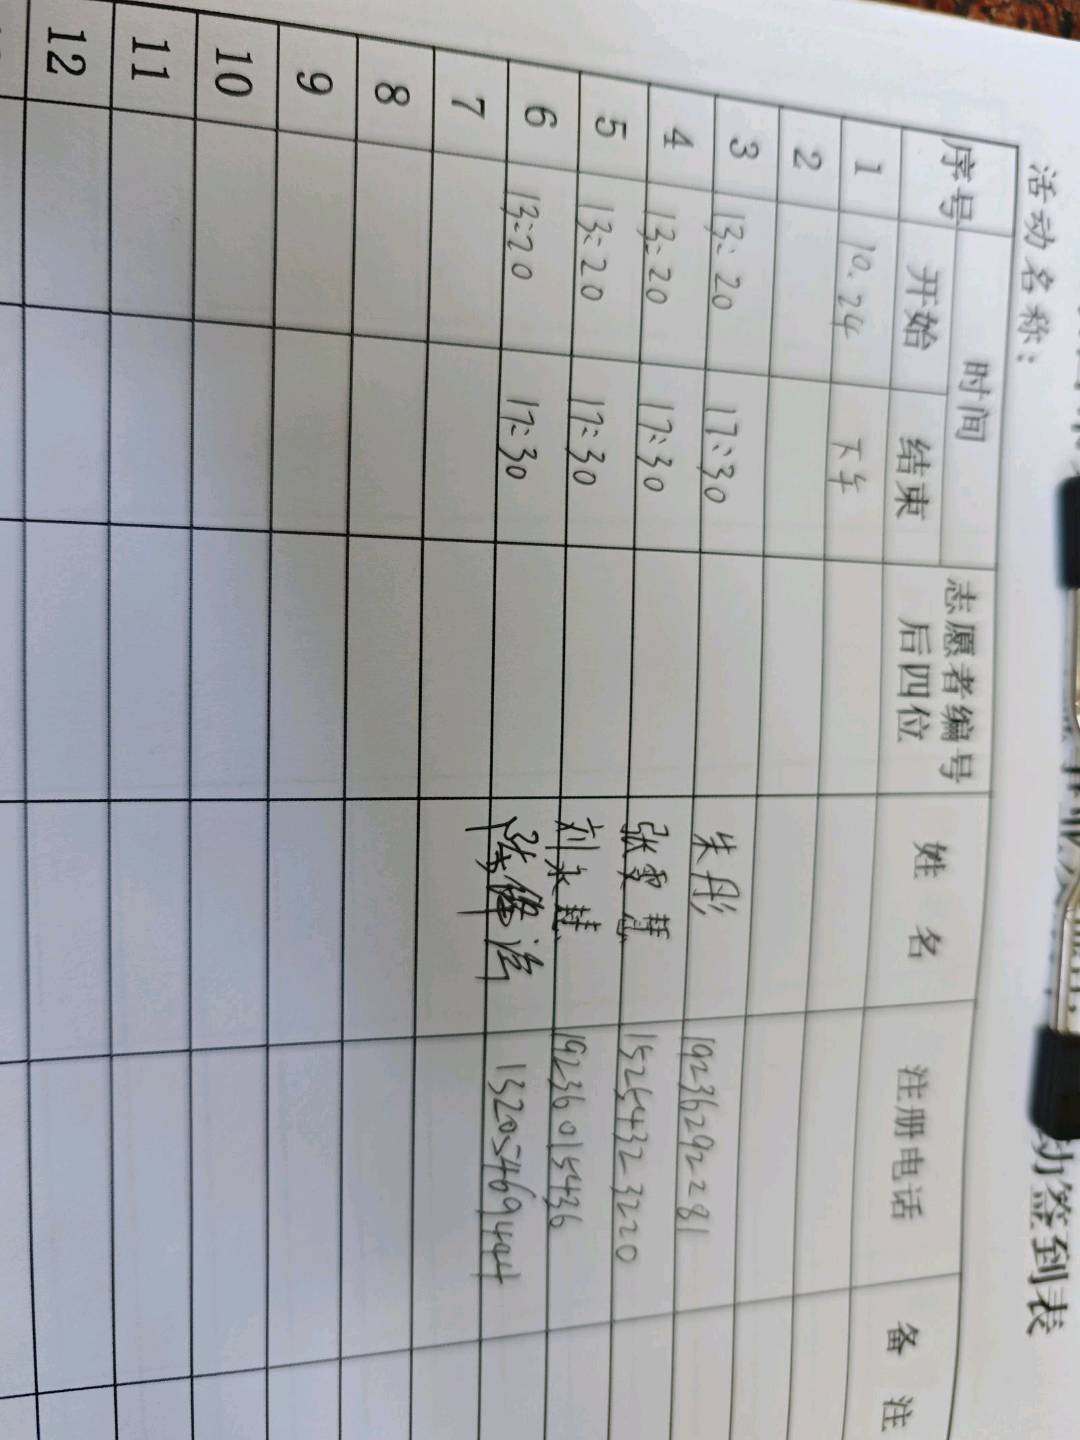 动签到表
活动名称：
序号 时间 志愿者编号后四位 姓 名 注册电话 备 注
开始 结束
1 10.24 下午
2
3 13:20 17:30 朱彤 19236292281
4 13:20 17:30 张雪慧 15254323220
5 13:20 17:30 刘永慧 19236015436
6 13:20 17:30 13205469444
7
8
9
10
11
12